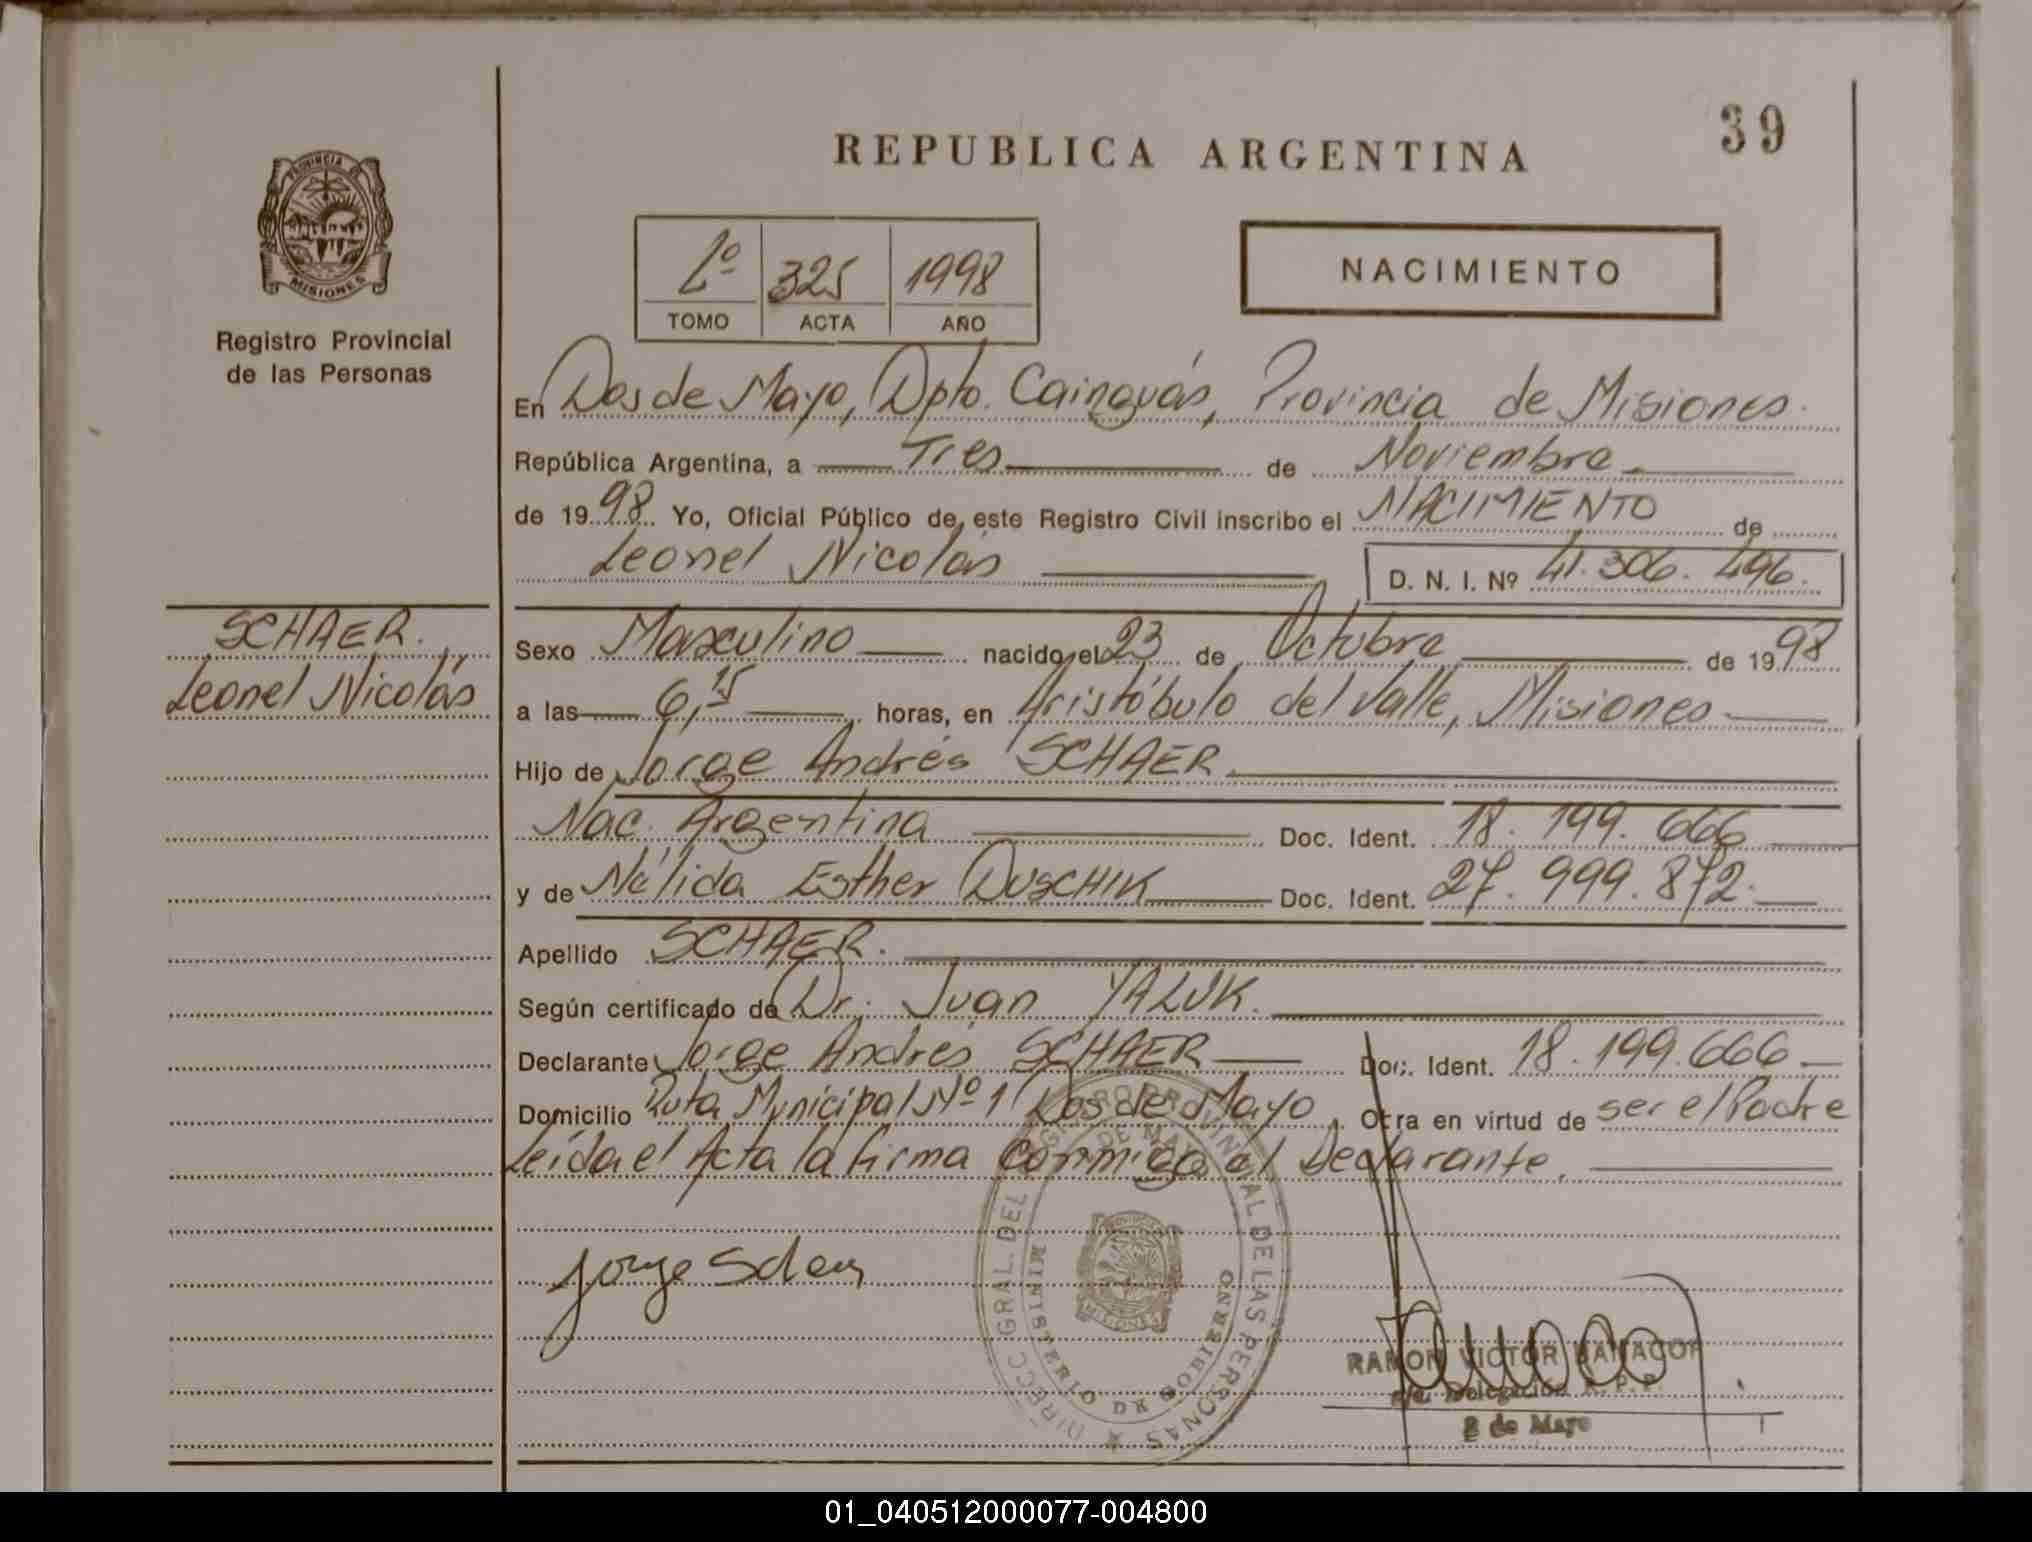 39
REPUBLICA ARGENTINA
PROVINCIA DE
MISIONES
Registro Provincial
de las Personas
325 1998
TOMO ACTA AÑO
NACIMIENTO
En Dos de Mayo, Dpto. Cainguás, Provincia de Misiones.
República Argentina, a Tres de Noviembre
de 1998 Yo, Oficial Público de este Registro Civil inscribo el NACIMIENTO de
Leonel Nicolás D. N. I. Nº 41.306.496.
SCHAER.
Leonel Nicolás
Sexo Masculino nacido el 23 de Octubre de 1998
a las 6,15 horas, en Aristóbulo del Valle, Misiones
Hijo de Jorge Andrés SCHAER
Nac. Argentina Doc. Ident. 18.199.666
y de Nélida Esther DUSCHIK Doc. Ident. 27.999.872.
Apellido SCHAER.
Según certificado de Dr. Juan YALUK.
Declarante Jorge Andrés SCHAER Doc. Ident. 18.199.666
Domicilio Ruta Municipal Nº 1 Dos de Mayo Obra en virtud de ser el Padre
Leída el Acta la firma conmigo el Declarante.
DIRECC. GRAL. DEL REGISTRO PROVINCIAL DE LAS PERSONAS
DE MAYO
MINISTERIO DE GOBIERNO
MISIONES
Jorge Schaer
RAMON VICTOR
Delegación R. P. P.
2 de Mayo
01_040512000077-004800